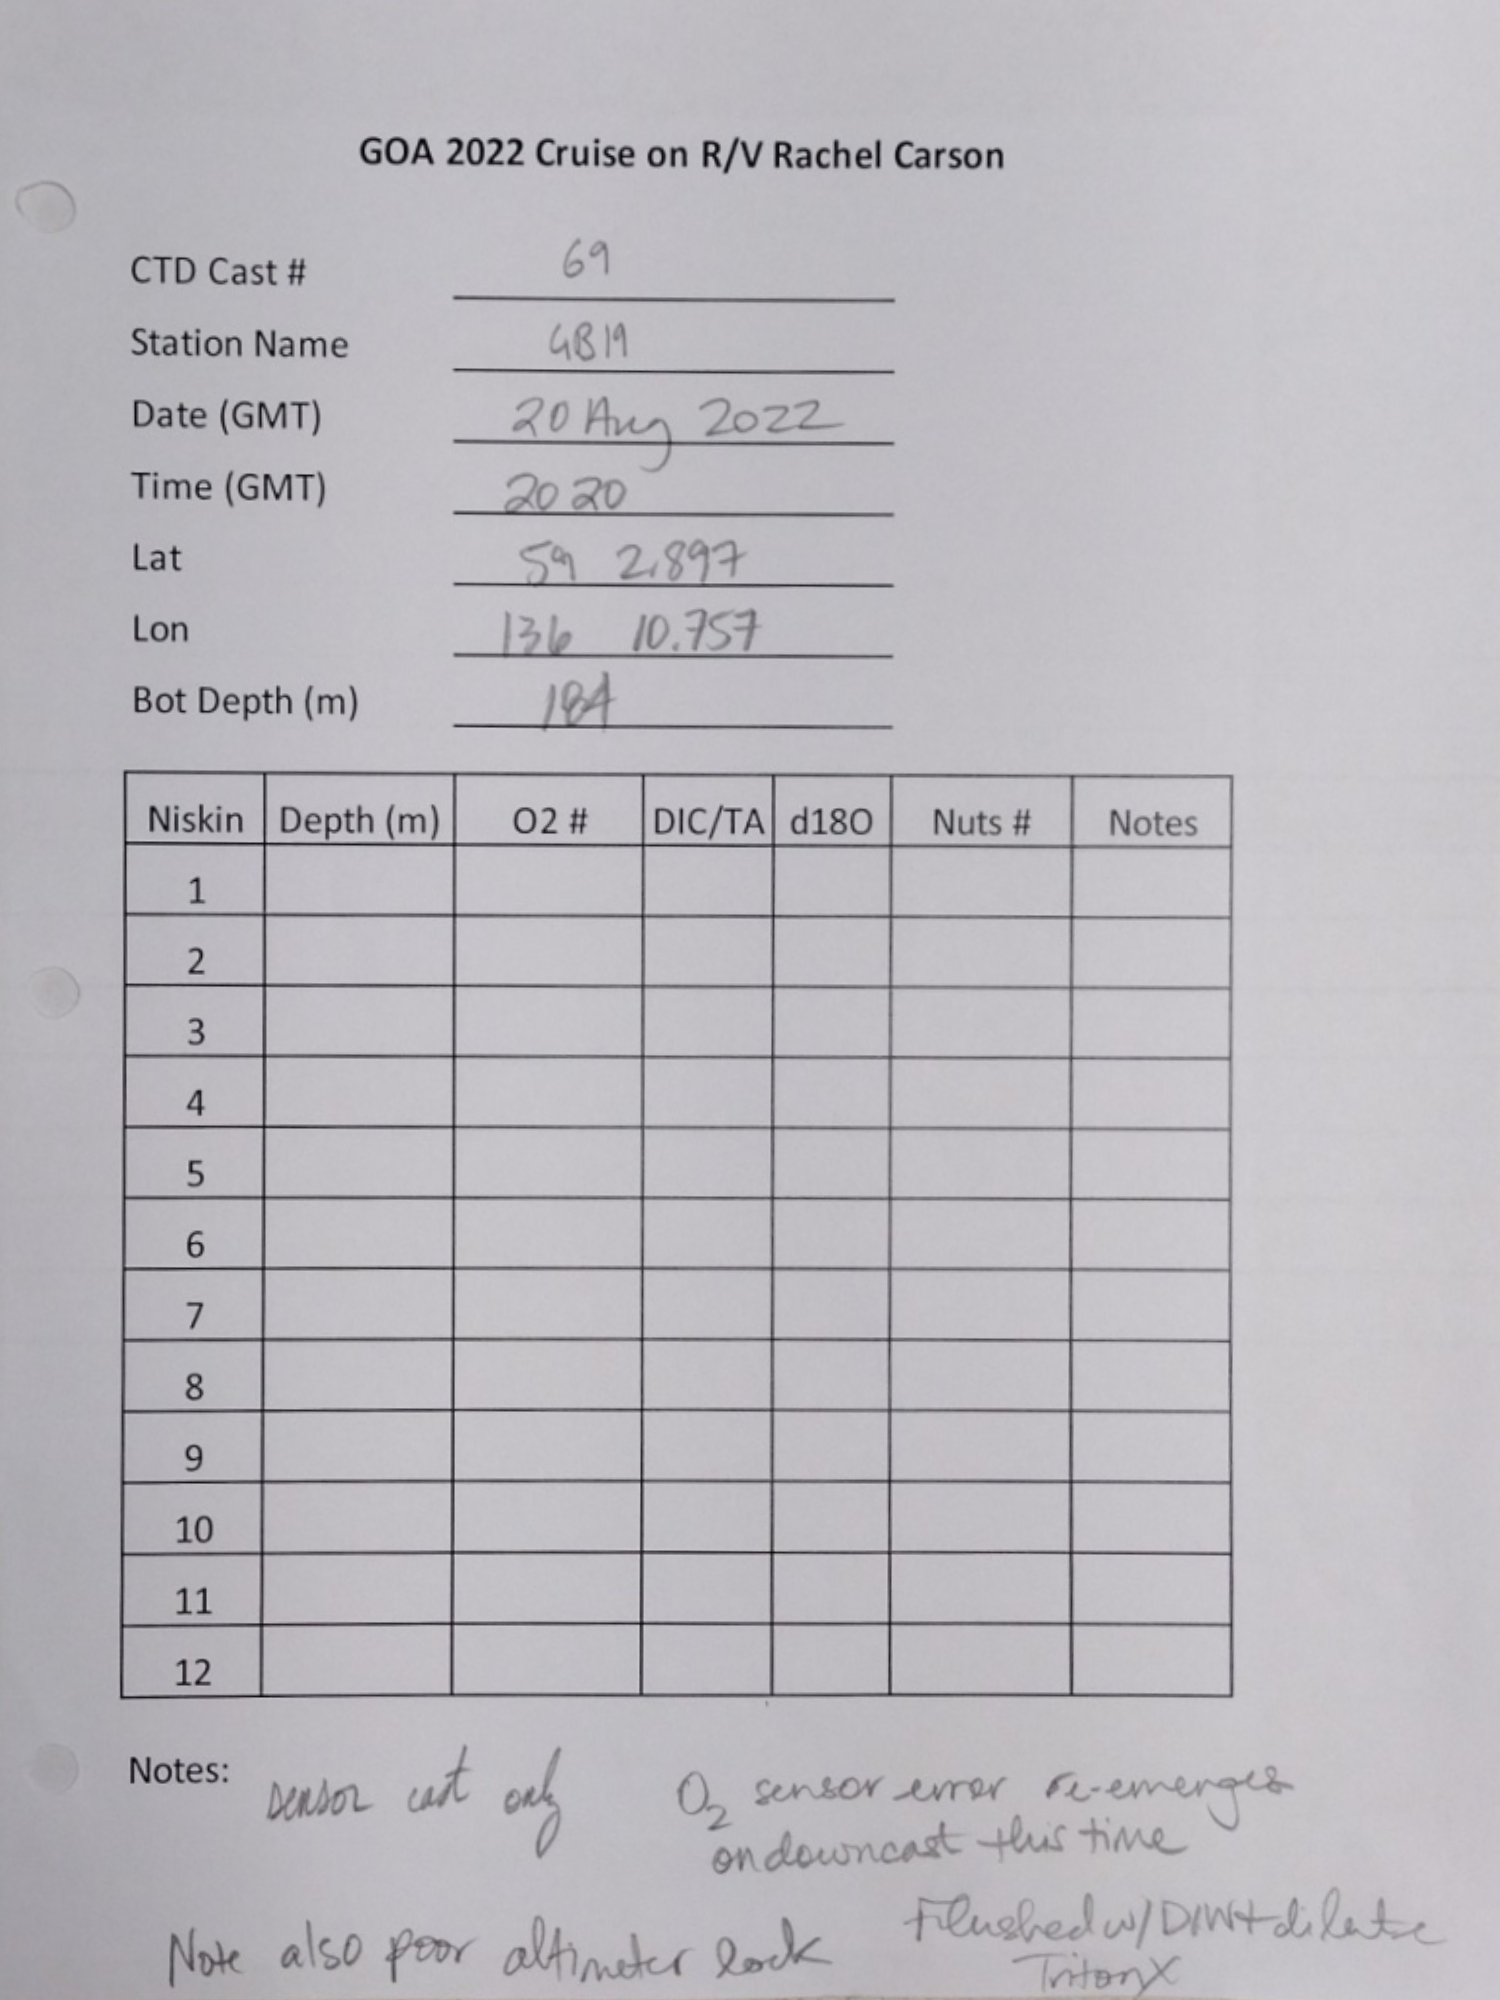 GOA 2022 Cruise on R/V Rachel Carson
CTD Cast # 69
Station Name GB19
Date (GMT) 20 Aug 2022
Time (GMT) 20 20
Lat 59 2.897
Lon 136 10.757
Bot Depth (m) 184
Niskin Depth (m) O2 # DIC/TA d18O Nuts # Notes
1
2
3
4
5
6
7
8
9
10
11
12
Notes: sensor cast only O2 sensor error re-emerges
on downcast this time
Flushed w/ DIW + dilute
Note also poor altimeter lock TritonX